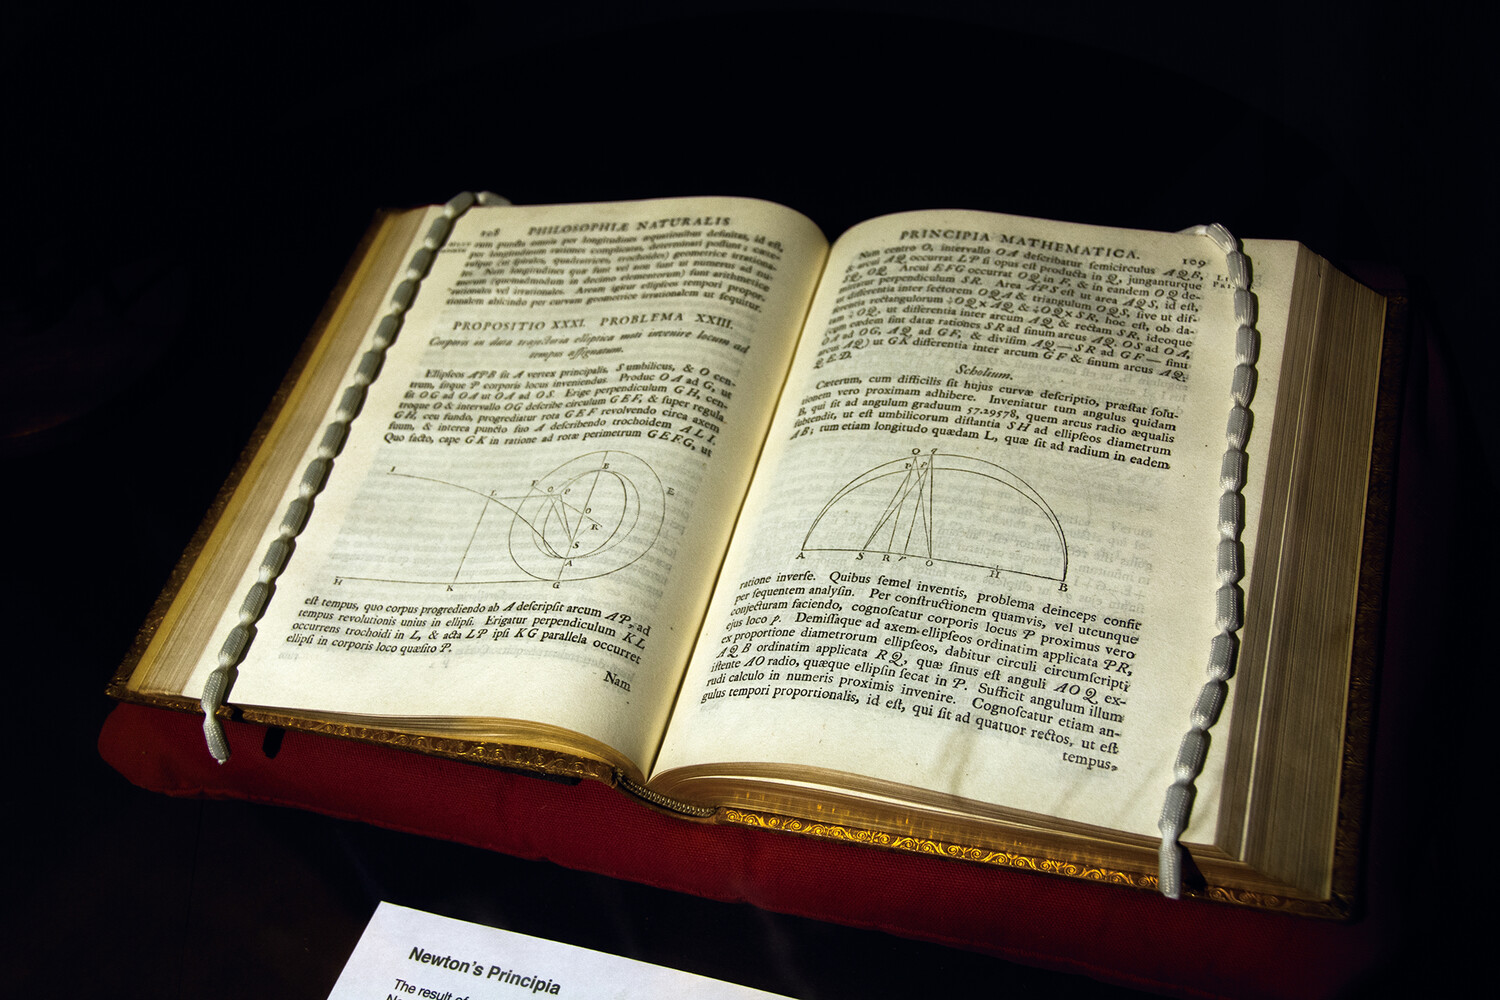 108 PHILOSOPHIÆ NATURALIS
rum puncta omnia per longitudines æquationibus definitas, id est,
per longitudinum rationes complicatas, determinari possunt; cæte-
rasque (ut spirales, quadratrices, trochoides) geometrice irrationa-
les. Nam longitudines quæ sunt vel non sunt ut numerus ad nu-
merum (quemadmodum in decimo elementorum) sunt arithmetice
rationales vel irrationales. Aream igitur ellipseos tempori propor-
tionalem abscindo per curvam geometrice irrationalem ut sequitur.
PROPOSITIO XXXI. PROBLEMA XXIII.
Corporis in data trajectoria elliptica moti invenire locum ad
tempus assignatum.
Ellipseos APB sit A vertex principalis, S umbilicus, & O cen-
trum, sitque P corporis locus inveniendus. Produc OA ad G, ut
sit OG ad OA ut OA ad OS. Erige perpendiculum GH, cen-
troque O & intervallo OG describe circulum GEF, & super regula
GH, ceu fundo, progrediatur rota GEF revolvendo circa axem
suum, & interea puncto suo A describendo trochoidem ALI.
Quo facto, cape GK in ratione ad rotæ perimetrum GEFG, ut
I L F Q P B E O R S A
H K G
est tempus, quo corpus progrediendo ab A descripsit arcum AP, ad
tempus revolutionis unius in ellipsi. Erigatur perpendiculum KL
occurrens trochoidi in L, & acta LP ipsi KG parallela occurret
ellipsi in corporis loco quæsito P.
Nam
PRINCIPIA MATHEMATICA. 109
Nam centro O, intervallo OA describatur semicirculus AQB,
& arcui AQ occurrat LP si opus est producta in Q, junganturque
SQ, OQ. Arcui EFG occurrat OQ in F, & in eandem OQ de-
mittatur perpendiculum SR. Area APS est ut area AQS, id est,
ut differentia inter sectorem OQA & triangulum OQS, sive ut dif-
ferentia rectangulorum ½OQ×AQ & ½OQ×SR, hoc est, ob da-
tam ½OQ, ut differentia inter arcum AQ & rectam SR, ideoque
(cum eædem sint datæ rationes SR ad sinum arcus AQ, OS ad OA,
OA ad OG, AQ ad GF, & divisim AQ—SR ad GF— sinu
arcus AQ) ut GK differentia inter arcum GF & sinum arcus AQ.
Q.E.D.
Scholium.
Cæterum, cum difficilis sit hujus curvæ descriptio, præstat solu-
tionem vero proximam adhibere. Inveniatur tum angulus quidam
B, qui sit ad angulum graduum 57.29578, quem arcus radio æqualis
subtendit, ut est umbilicorum distantia SH ad ellipseos diametrum
AB; tum etiam longitudo quædam L, quæ sit ad radium in eadem
Q q
P p
A S R r O H B
ratione inverse. Quibus semel inventis, problema deinceps confit
per sequentem analysin. Per constructionem quamvis, vel utcunque
conjecturam faciendo, cognoscatur corporis locus P proximus vero
ejus loco p. Demissaque ad axem ellipseos ordinatim applicata PR,
ex proportione diametrorum ellipseos, dabitur circuli circumscripti
AQB ordinatim applicata RQ, quæ sinus est anguli AOQ, ex-
istente AO radio, quæque ellipsin secat in P. Sufficit angulum illum
rudi calculo in numeris proximis invenire. Cognoscatur etiam an-
gulus tempori proportionalis, id est, qui sit ad quatuor rectos, ut est
tempus,
Newton's Principia
The result of